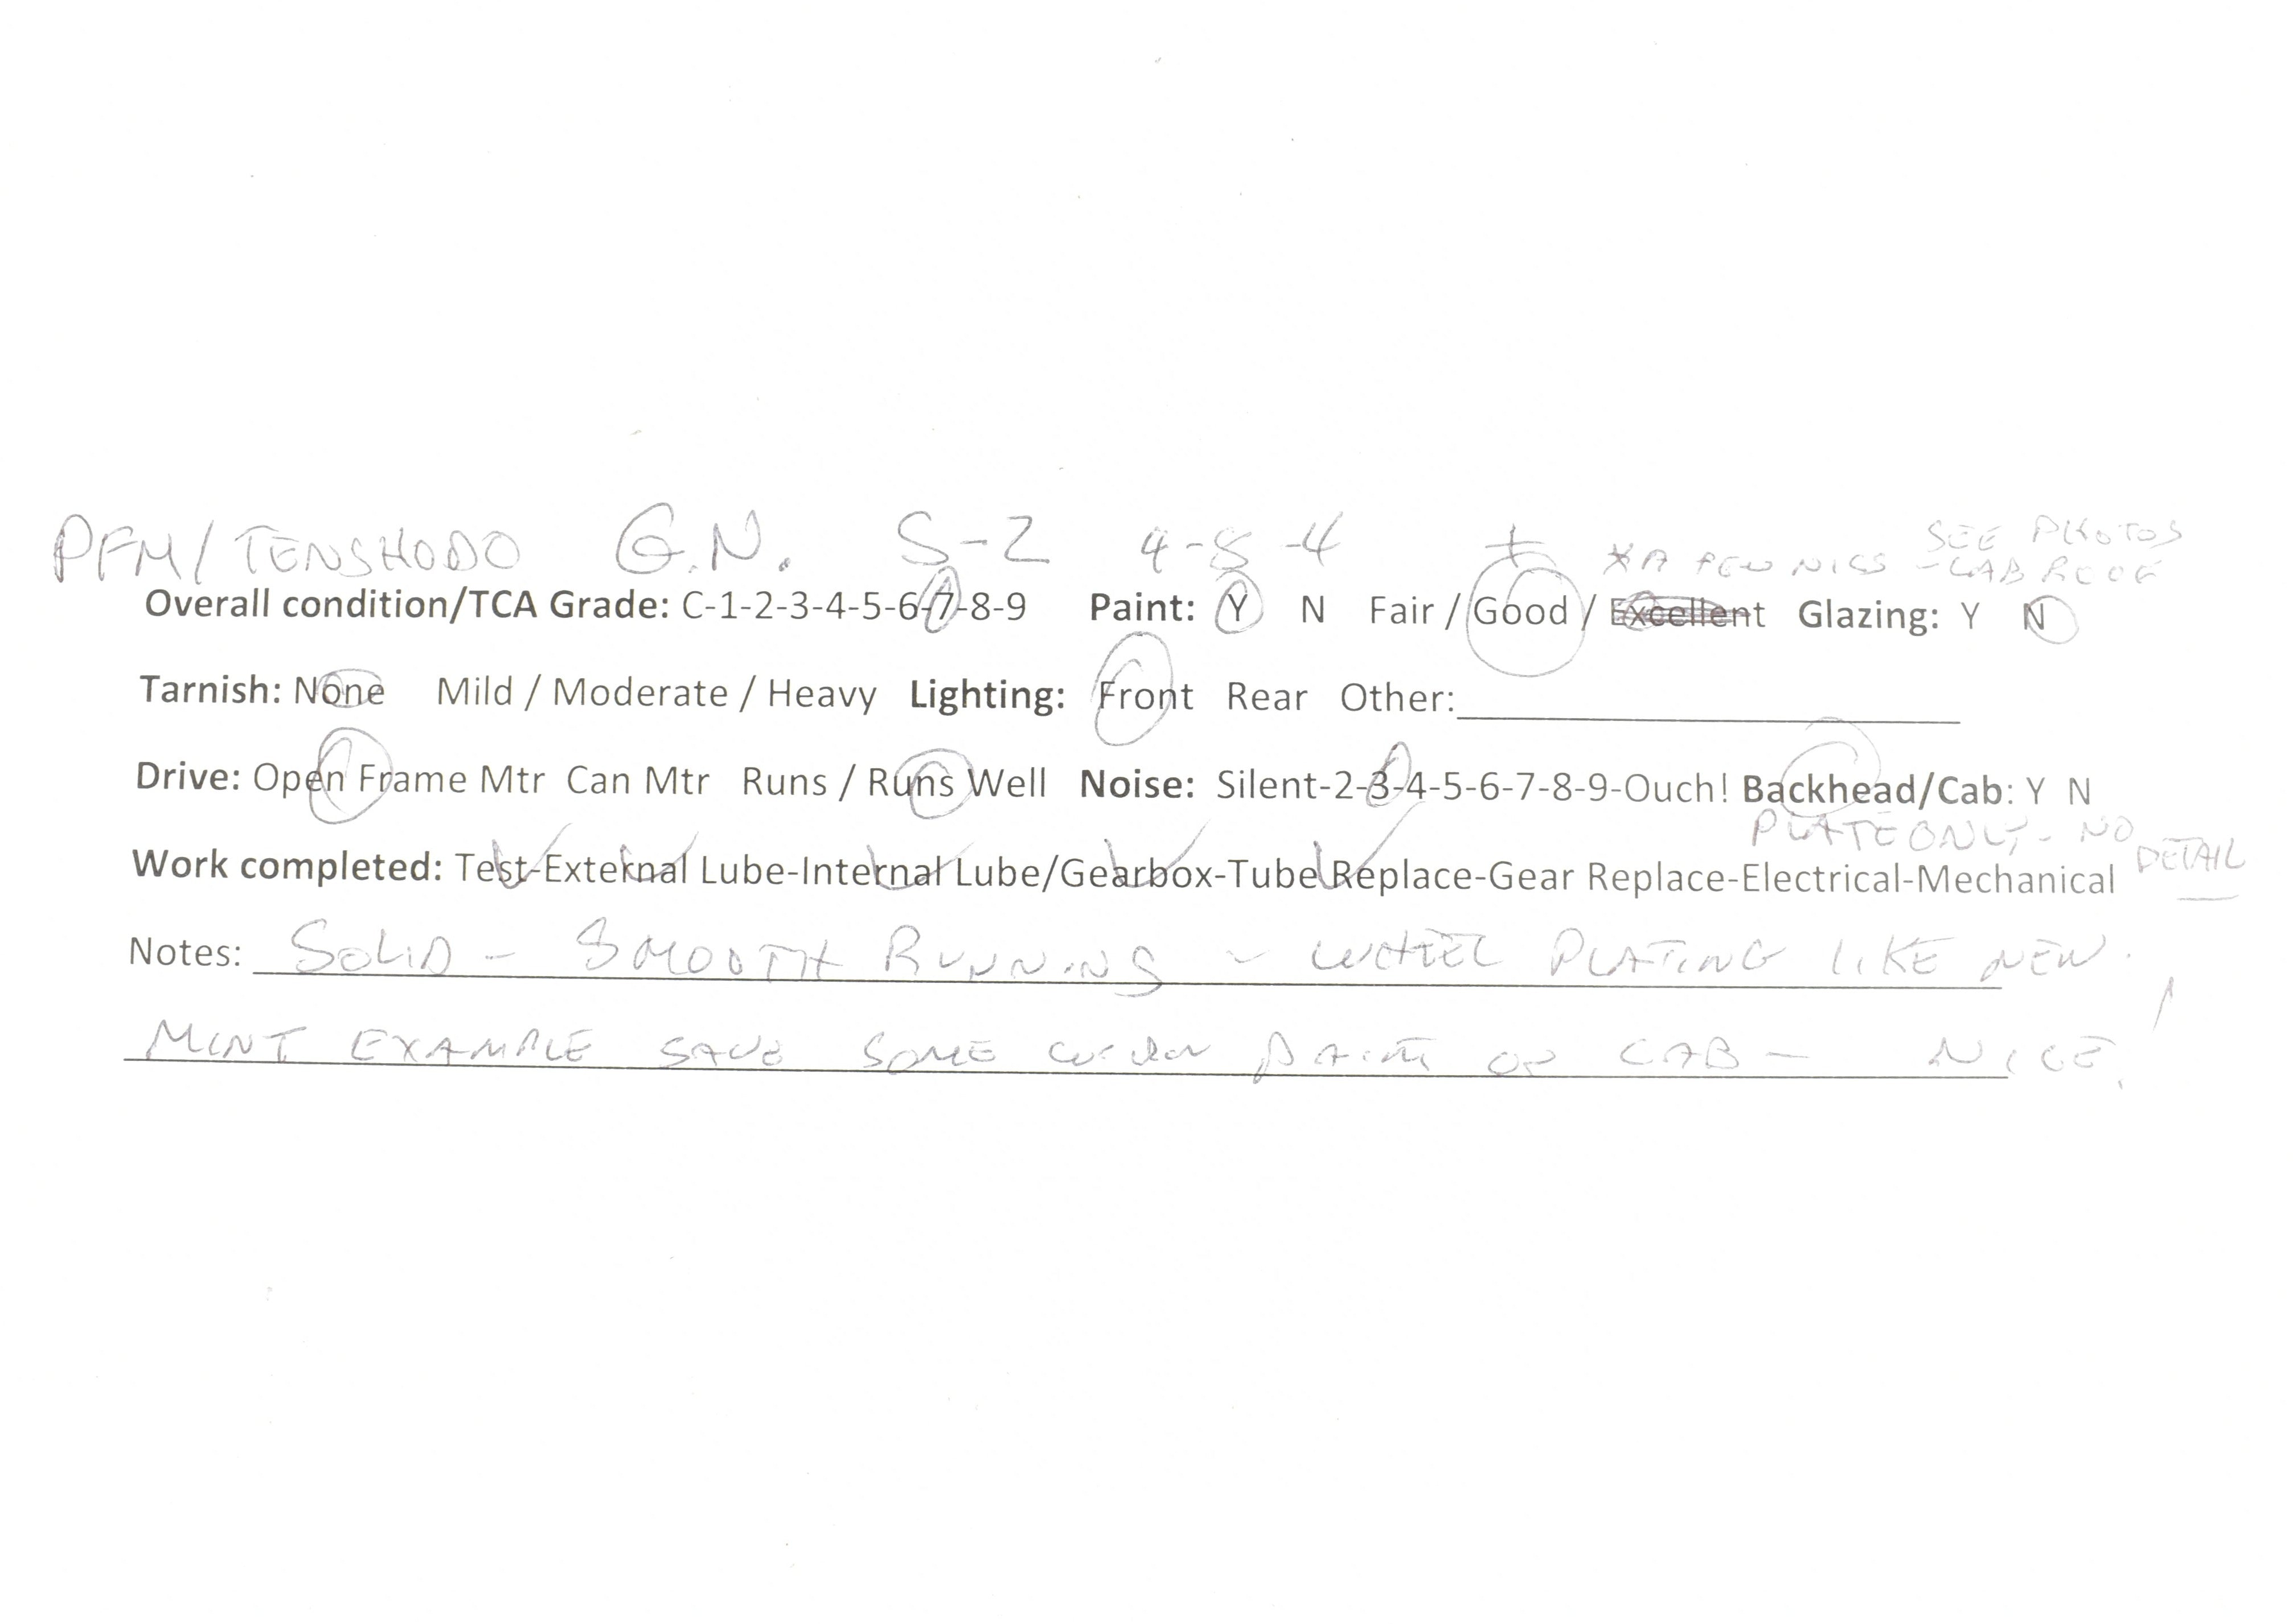 PFM/TENSHODO G.N. S-2 4-8-4 ± *A FEW NICS SEE PHOTOS
-CAB ROOF
Overall condition/TCA Grade: C-1-2-3-4-5-6-7-8-9 Paint: Y N Fair / Good / Excellent Glazing: Y N
Tarnish: None Mild / Moderate / Heavy Lighting: Front Rear Other:
Drive: Open Frame Mtr Can Mtr Runs / Runs Well Noise: Silent-2-3-4-5-6-7-8-9-Ouch! Backhead/Cab: Y N
PLATE ONLY - NO DETAIL
Work completed: Test-External Lube-Internal Lube/Gearbox-Tube Replace-Gear Replace-Electrical-Mechanical
Notes: SOLID - SMOOTH RUNNING ~ WHEEL PLATING LIKE NEW.
MINT EXAMPLE SAVE SOME WORN PAINT OF CAB - NICE!